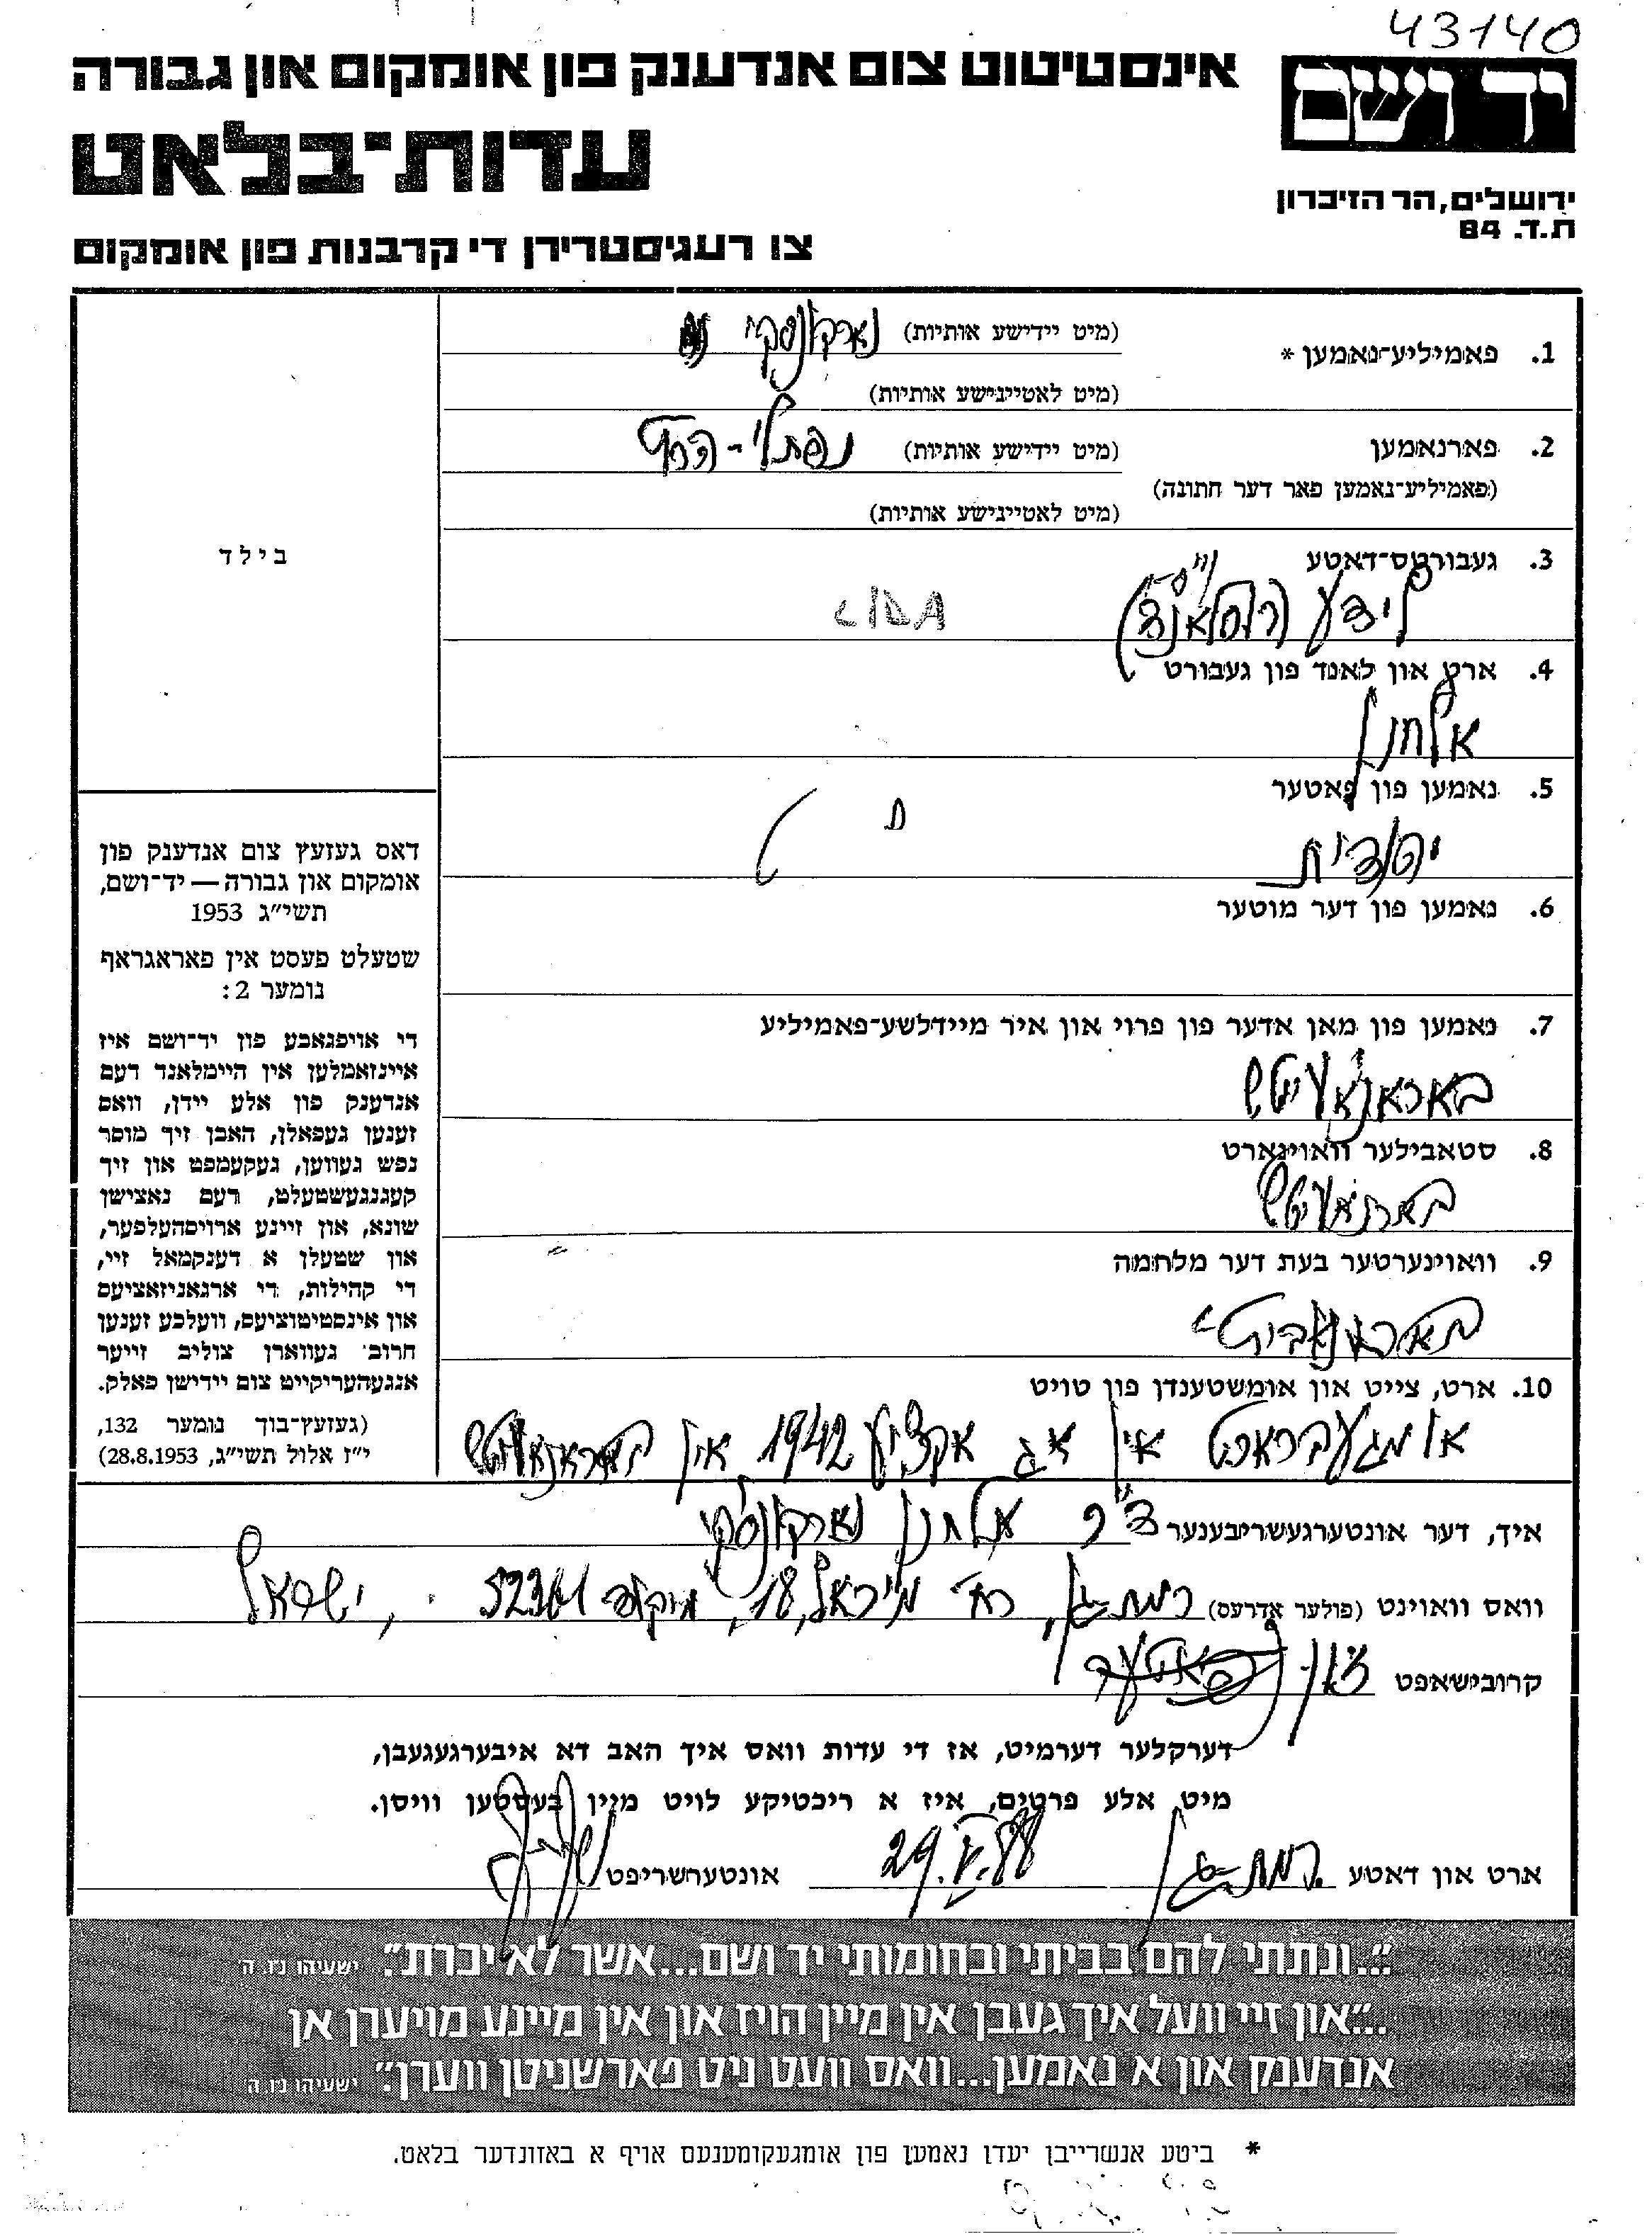 43140
יד ושם
אינסטיטוט צום אנדענק פון אומקום און גבורה
עדות־בלאט
ירושלים, הר הזיכרון
ת.ד. 84
צו רעגיסטרירן די קרבנות פון אומקום
1. פאמיליע־נאמען * (מיט יידישע אותיות) נארקונסקי
(מיט לאטיינישע אותיות)
2. פארנאמען (מיט יידישע אותיות) נפתלי - הירץ
(פאמיליע־נאמען פאר דער חתונה)
(מיט לאטיינישע אותיות)
3. געבורטס־דאטע
לידע LIDA
4. ארט און לאנד פון געבורט
אלחנן
5. נאמען פון פאטער
יהודית
6. נאמען פון דער מוטער
7. נאמען פון מאן אדער פון פרוי און איר מיידלשע־פאמיליע
באראנאוויטש
8. סטאבילער וואוינארט
באראנאוויטש
9. וואוינערטער בעת דער מלחמה
10. ארט, צייט און אומשטענדן פון טויט
אומגעבראכט אין אג אקציע 1942 אין באראנאוויטש
בילד
דאס געזעץ צום אנדענק פון
אומקום און גבורה — יד־ושם,
תשי״ג 1953
שטעלט פעסט אין פאראגראף
נומער 2:
די אויפגאבע פון יד־ושם איז
איינזאמלען אין היימלאנד דעם
אנדענק פון אלע יידן, וואס
זענען געפאלן, האבן זיך מוסר
נפש געווען, געקעמפט און זיך
קעגנגעשטעלט, דעם נאצישן
שונא, און זיינע ארויסהעלפער,
און שטעלן א דענקמאל זיי,
די קהילות, די ארגאניזאציעס
און אינסטיטוציעס, וועלכע זענען
חרוב געווארן צוליב זייער
אנגעהעריקייט צום יידישן פאלק.
(געזעץ־בוך נומער 132,
י״ז אלול תשי״ג, 28.8.1953)
איך, דער אונטערגעשריבענער ד״ר אלחנן נארקונסקי
וואס וואוינט (פולער אדרעס) רמת-גן, רח' 18, מיקוד 52361, ישראל
קרובישאפט זון
דערקלער דערמיט, אז די עדות וואס איך האב דא איבערגעגעבן,
מיט אלע פרטים, איז א ריכטיקע לויט מיין בעסטען וויסן.
ארט און דאטע רמת-גן 29.V.88 אונטערשריפט
״...ונתתי להם בביתי ובחומותי יד ושם...אשר לא יכרת״. ישעיהו נ״ו, ה
״...און זיי וועל איך געבן אין מיין הויז און אין מיינע מויערן אן
אנדענק און א נאמען...וואס וועט ניט פארשניטן ווערן״. ישעיהו נ״ו, ה
* ביטע אנשרייבן יעדן נאמען פון אומגעקומענעם אויף א באזונדער בלאט.